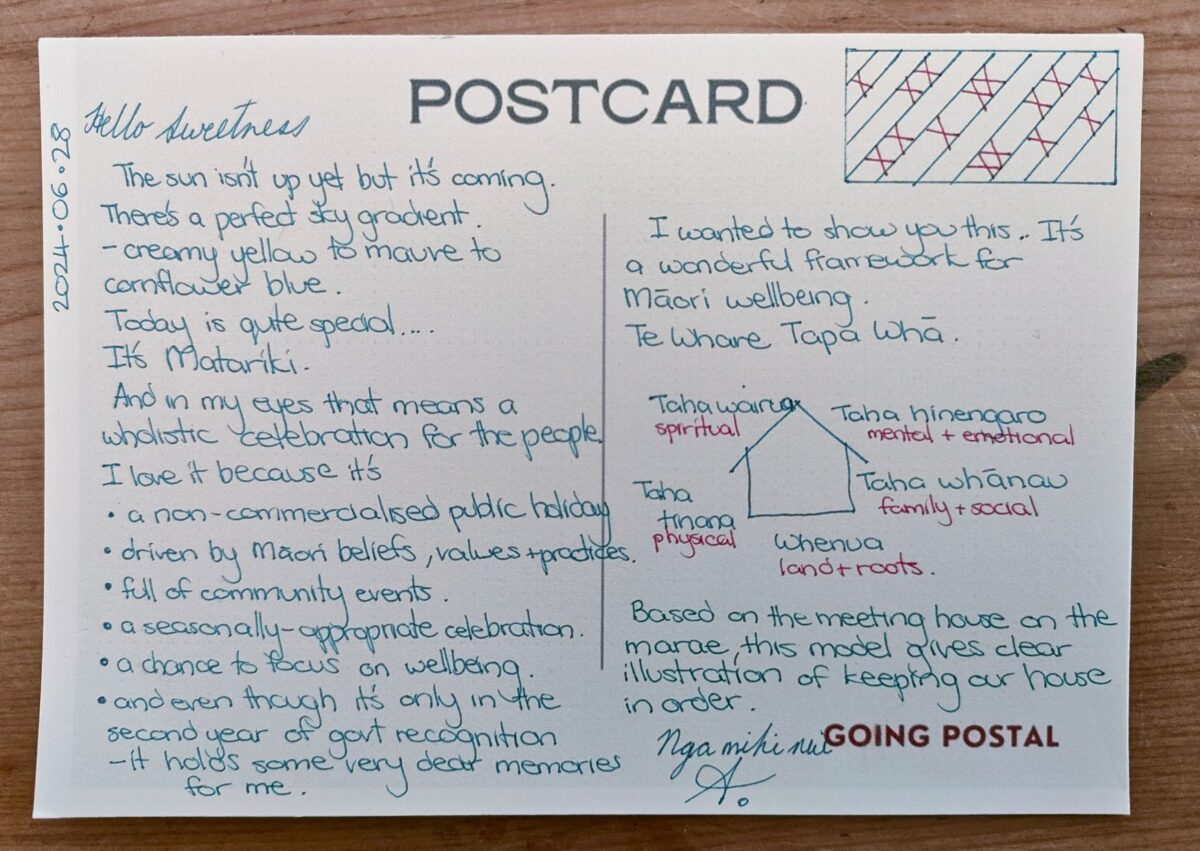 POSTCARD
2024.06.28
Hello Sweetness
The sun isn't up yet but it's coming.
There's a perfect sky gradient.
- creamy yellow to mauve to
cornflower blue.
Today is qute special....
It's Matariki.
And in my eyes that means a
wholistic celebration for the people
I love it because it's
• a non-commercialised public holiday
• driven by Māori beliefs, values + practices.
• full of community events.
• a seasonally-appropriate celebration.
• a chance to focus on wellbeing.
• and even though it's only in the
second year of govt recognition
- it holds some very dear memories
for me.
I wanted to show you this.. It's
a wonderful framework for
Māori wellbeing.
Te Whare Tapa Whā.
Taha wairua
spiritual
Taha hinengaro
mental + emotional
Taha
tinana
physical
Taha whānau
family + social
Whenua
land + roots.
Based on the meeting house on the
marae, this model gives clear
illustration of keeping our house
in order.
Nga mihi nui
A.
GOING POSTAL